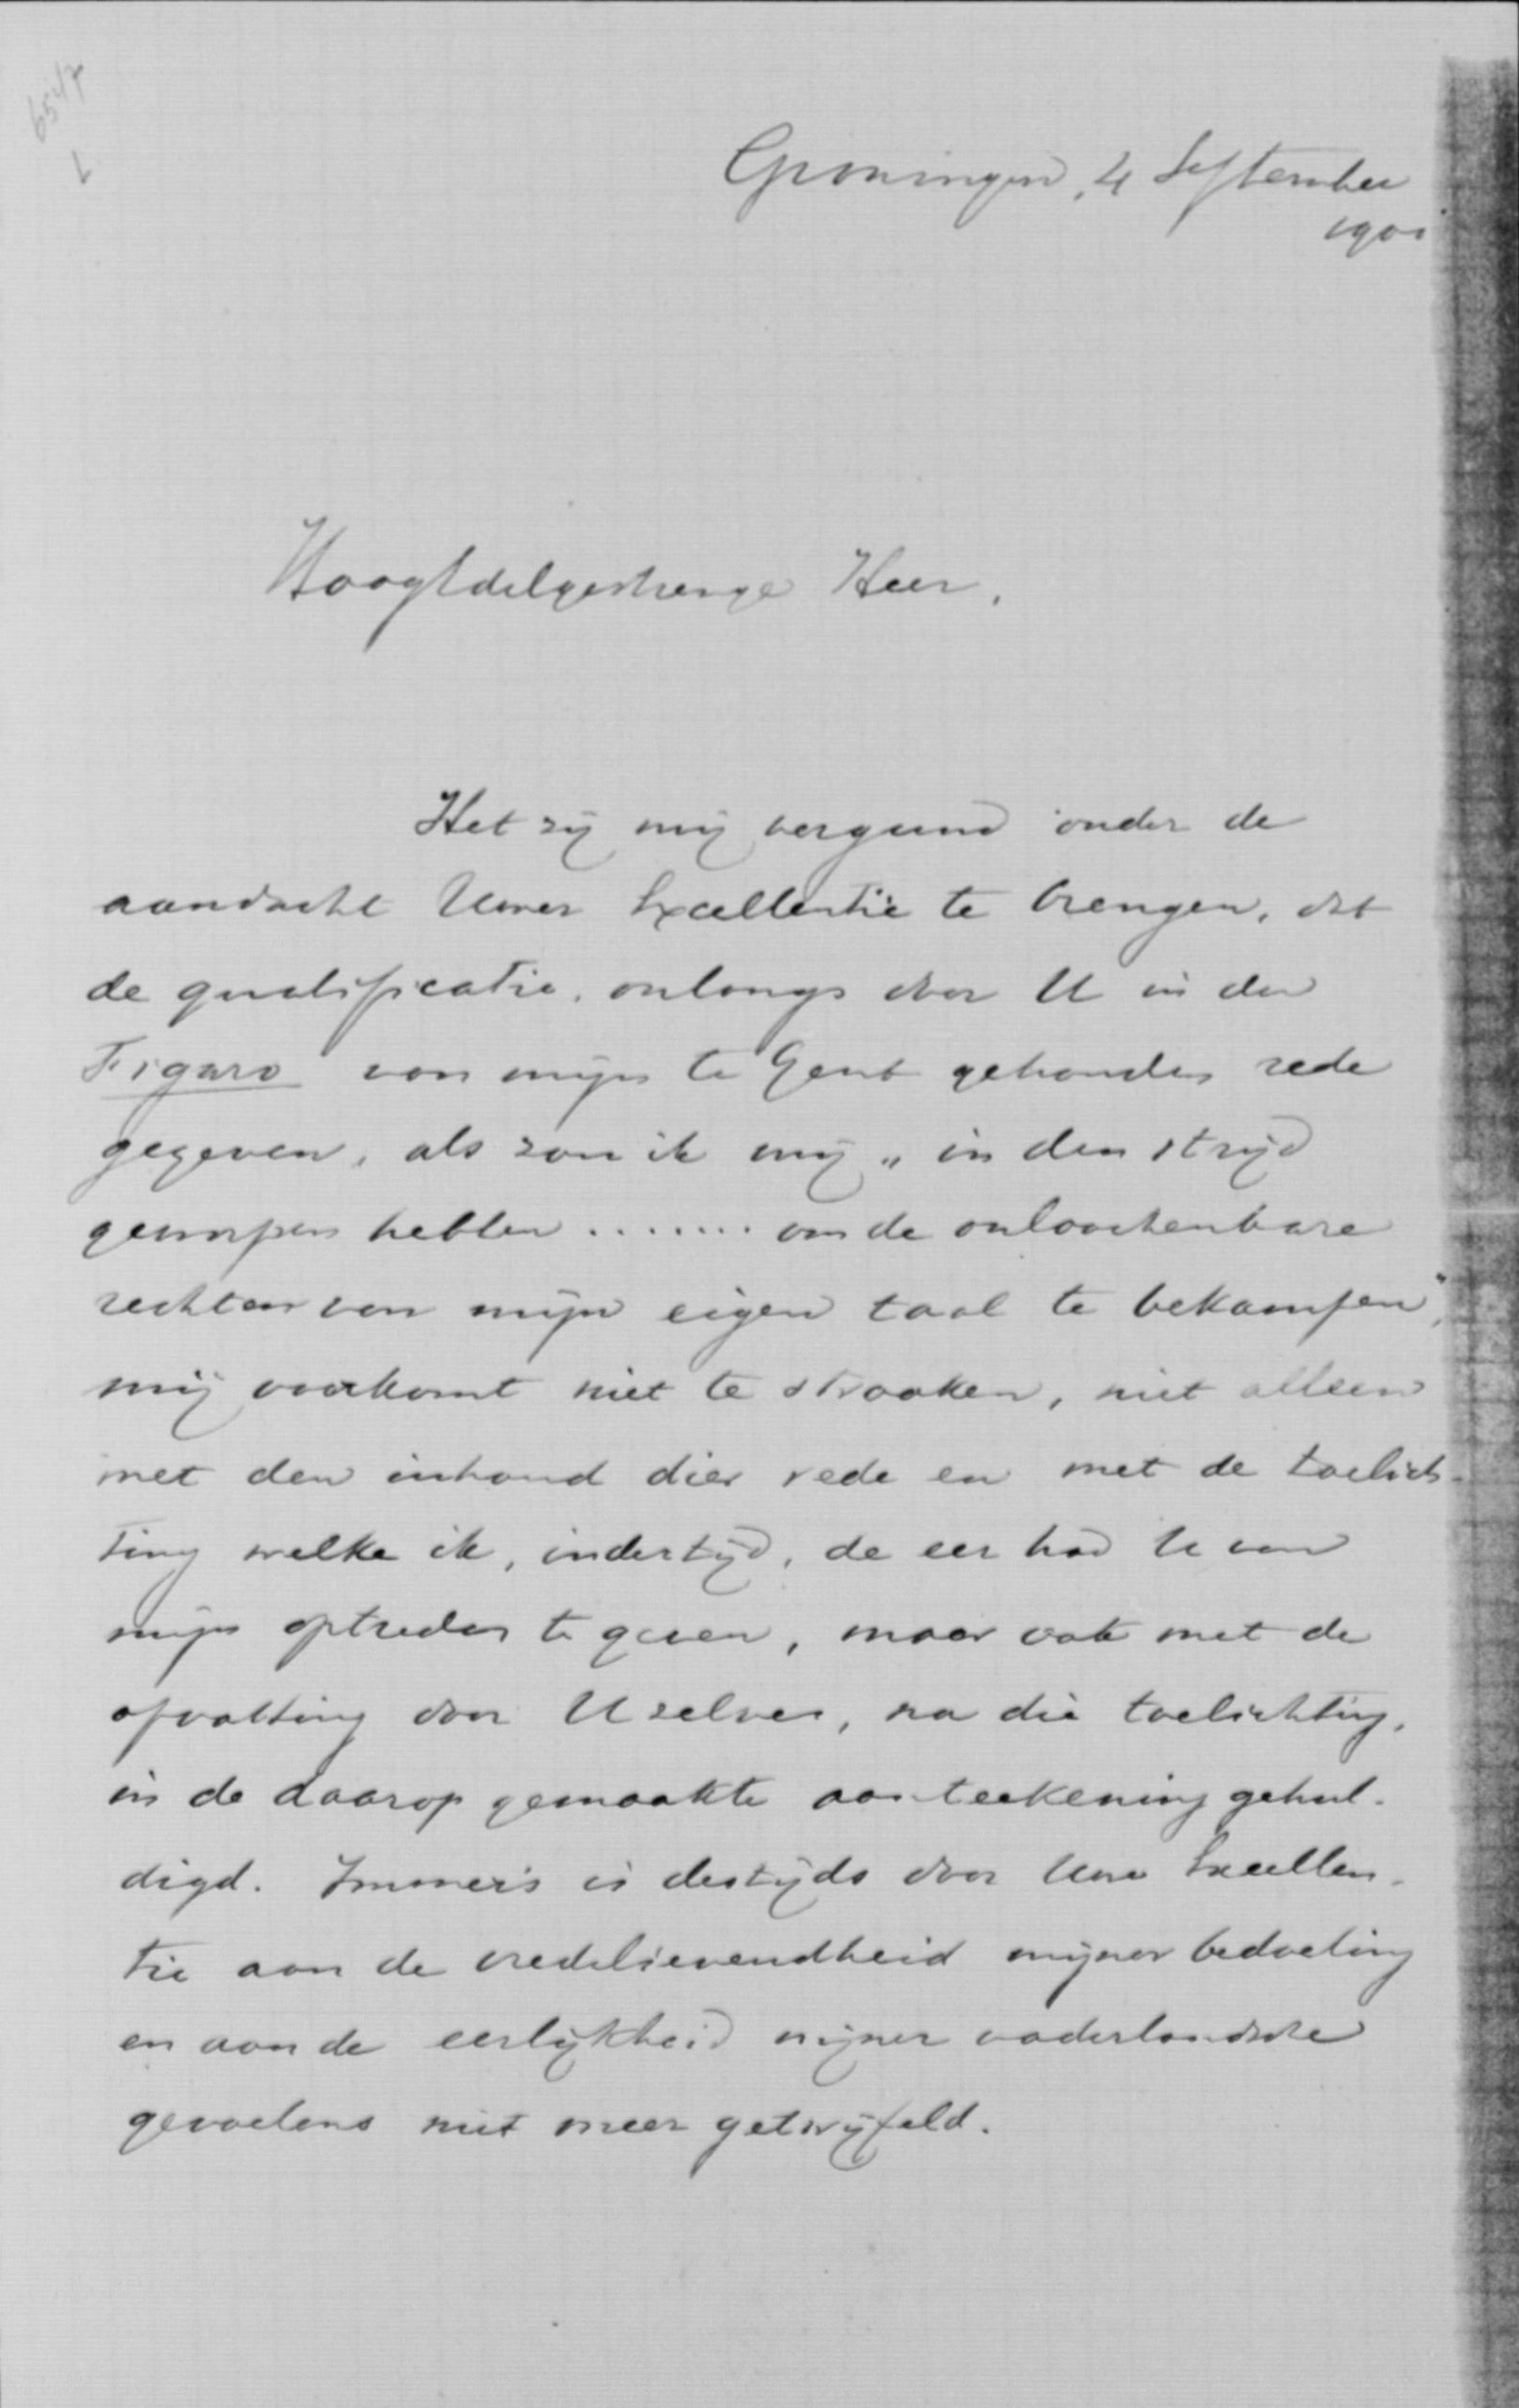 6547
L
Groningen, 4 September
1901
HoogEdelgestrenge Heer,
Het zij mij vergund onder de
aandacht Uwer Excellentie te brengen, dat
de qualificatie, onlangs door U in den
Figaro van mijn te Gent gehouden rede
gegeven, als zou ik mij „in den strijd
geworpen hebben ....... om de onloochenbare
rechten van mijn eigen taal te bekampen",
mij voorkomt niet te strooken, niet alleen
met den inhoud dier rede en met de toelich-
ting welke ik, indertijd, de eer had U van
mijn optreden te geven, maar ook met de
opvatting door Uzelven, na die toelichting,
in de daarop gemaakte aanteekening gehul-
digd. Immers is destijds door Uwe Excellen-
tie aan de vredelievendheid mijner bedoeling
en aan de eerlijkheid mijner vaderlandsche
gevoelens niet meer getwijfeld.